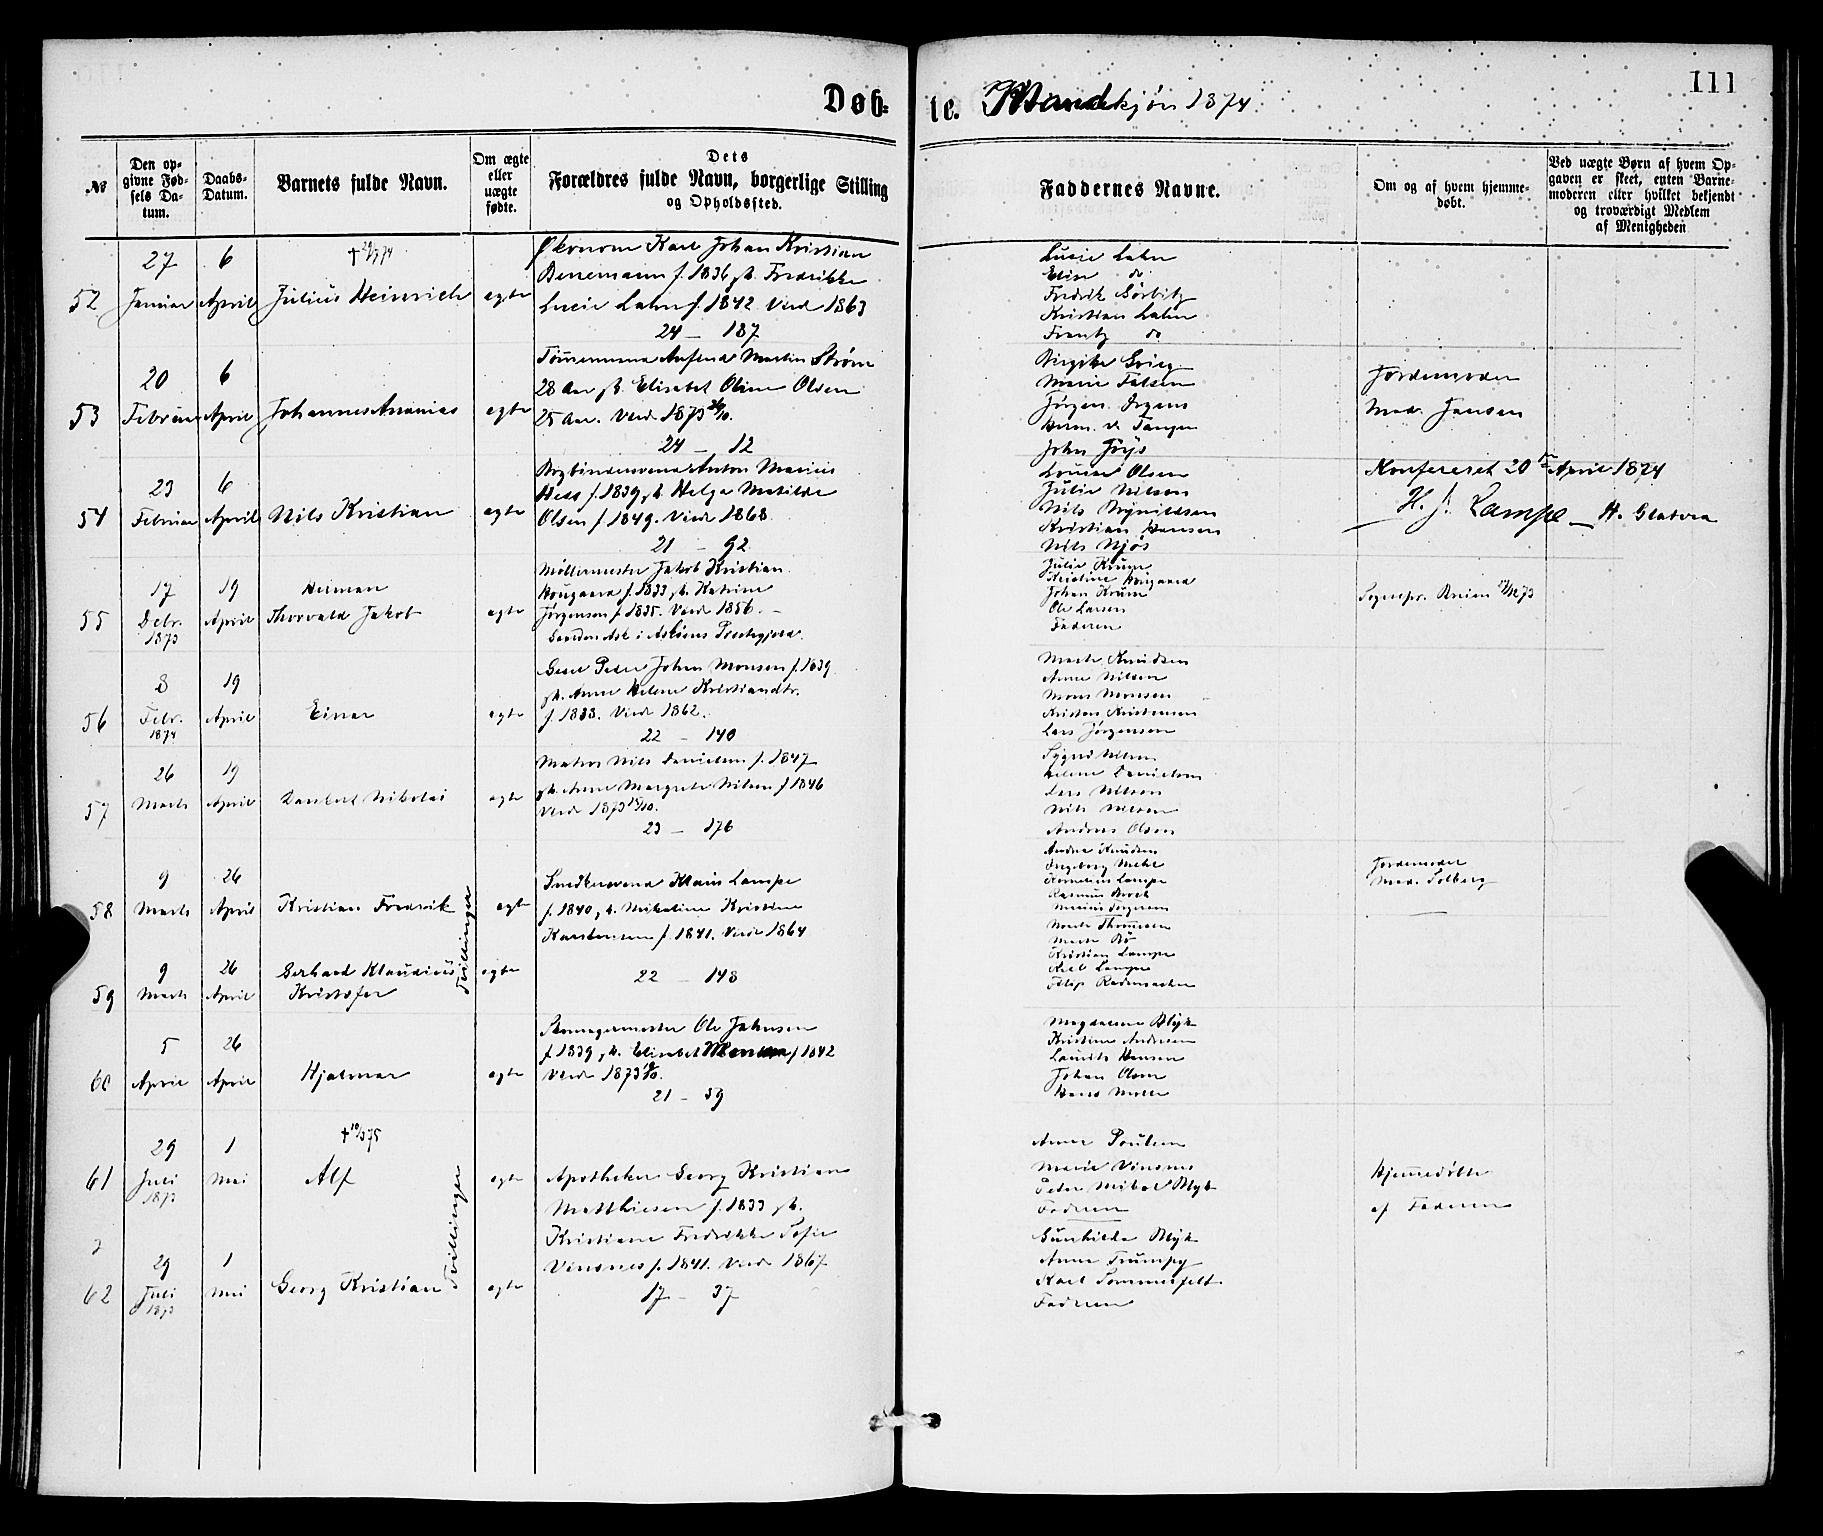 111
Døb-
te. Mandkjøn 1874
№
Den op-
givne Fød-
sels Da-
tum.
Daabs-
Datum.
Barnets fulde Navn.
Om ægte
eller
uægte
fødte.
Dets
Forældres fulde Navn, borgerlige Stilling
og Opholdssted.
Faddernes Navne.
Om og af hvem hjemme-
døbt.
Ved uægte Børn af hvem Op-
gaven er skeet, enten Barne-
moderen eller hvilket bekjendt
og troværdigt Medlem
af Menigheden
52
27
Januar
6
April
Julius Heinrich
egte
Økonom Karl Johan Kristian
f. 1836 gh. Fredrikke
Lucie Lahn f. 1842 Viede 1863
24 — 187
Lucie Lahn
Elise do
Fredrik
Kristian Lahn
Frantz do
53
20
Februar
6
April
Johannes Ananias
egte
Martin Strøm
28 Aar gh. Elisabet Oline Olsen
25 Aar. Viede 1873
24 — 12
Birgitte Grieg
Marie Falsen
Jørgen Irgens
Herm. v. Tangen
John
Jordemoder
Mad. Jansen
54
23
Februar
6
April
Nils Kristian
egte
Bogbindersvend Anton Marius
Hess f. 1839 gh. Helga Matilde
Olsen f. 1849. Viede 1868.
21 — 92
Louise Olsen
Julie Nilsen
Nils
Kristian Hansen
Nils Njøs
Konfereret 20de April 1874
H. J. Lampe — H.
55
17
Debr.
1873
19
April
Herman
Thorvald Jakob
egte
Møllermester Jakob Kristian
Hougaard f. 1833 gh. Katrine
Jørgensen f. 1835. Viede 1856. —
Ask i Askøens Prestegjeld.
Julie Krüm
Kristine Hougaard
Johan Krüm
Ole Larsen
Faderen
Sognepr.
56
8
Febr.
1874
19
April
Einar
egte
Peder Johan Monsen f. 1839
gh. Anne Helene Kristiansdtr.
f. 1833. Viede 1862.
22 — 140
Marte Knudsen
Anne Nilsen
Mons Monsen
Kristen Kristensen
Lars Jørgensen
57
26
Marts
19
April
Nikolai
egte
Matros Nils Danielsen f. 1847
gh. Anne Margrete Nilsen f. 1846
Viede 1873
23 — 176
Sygni Nilsen
Helene Danielsen
Lars Nilsen
Nils Nilsen
Andreas Olsen
58
9
Marts
26
April
Kristian Fredrik
Tvillinger
egte
Snedkersvend Klaus Lampe
f. 1840 gh. Nikoline Kristine
Karstensen f. 1841. Viede 1864
Andrea Knudsen
Ingeborg
Kornelius Lampe
Rasmus
Marius Torgersen
Jordemoder
Mad. Solberg
59
9
Marts
26
April
Gerhard Klaudius
Kristofer
egte
22 — 148
Marte Thomassen
Marte Bø
Kristian Lampe
Karl Lampe
Filip Rademacher
60
5
April
26
April
Hjalmar
egte
Ole Johnsen
f. 1839 gh. Elisabet f. 1842
Viede 1873
21 — 59
Magdalena Blyk
Kristine Andersen
Laurits Hansen
Johan Olsen
Hans
61
29
Juli
1873
1
Mai
Alf
Tvillinger
egte
Apotheker Georg Kristian
Matthiesen f. 1833 gh.
Kristiane Fredrikke Sofie
Vinsnes f. 1841. Viede 1867
17 — 37
Anne Poulsen
Marie Vinsnes
Peter Mikal Blyk
Faderen
Hjemmedøbte
af Faderen
62
29
Juli
1873
1
Mai
Georg Kristian
egte
Gunhilde Blyk
Anne Trumpy
Karl Sommerfelt
Faderen